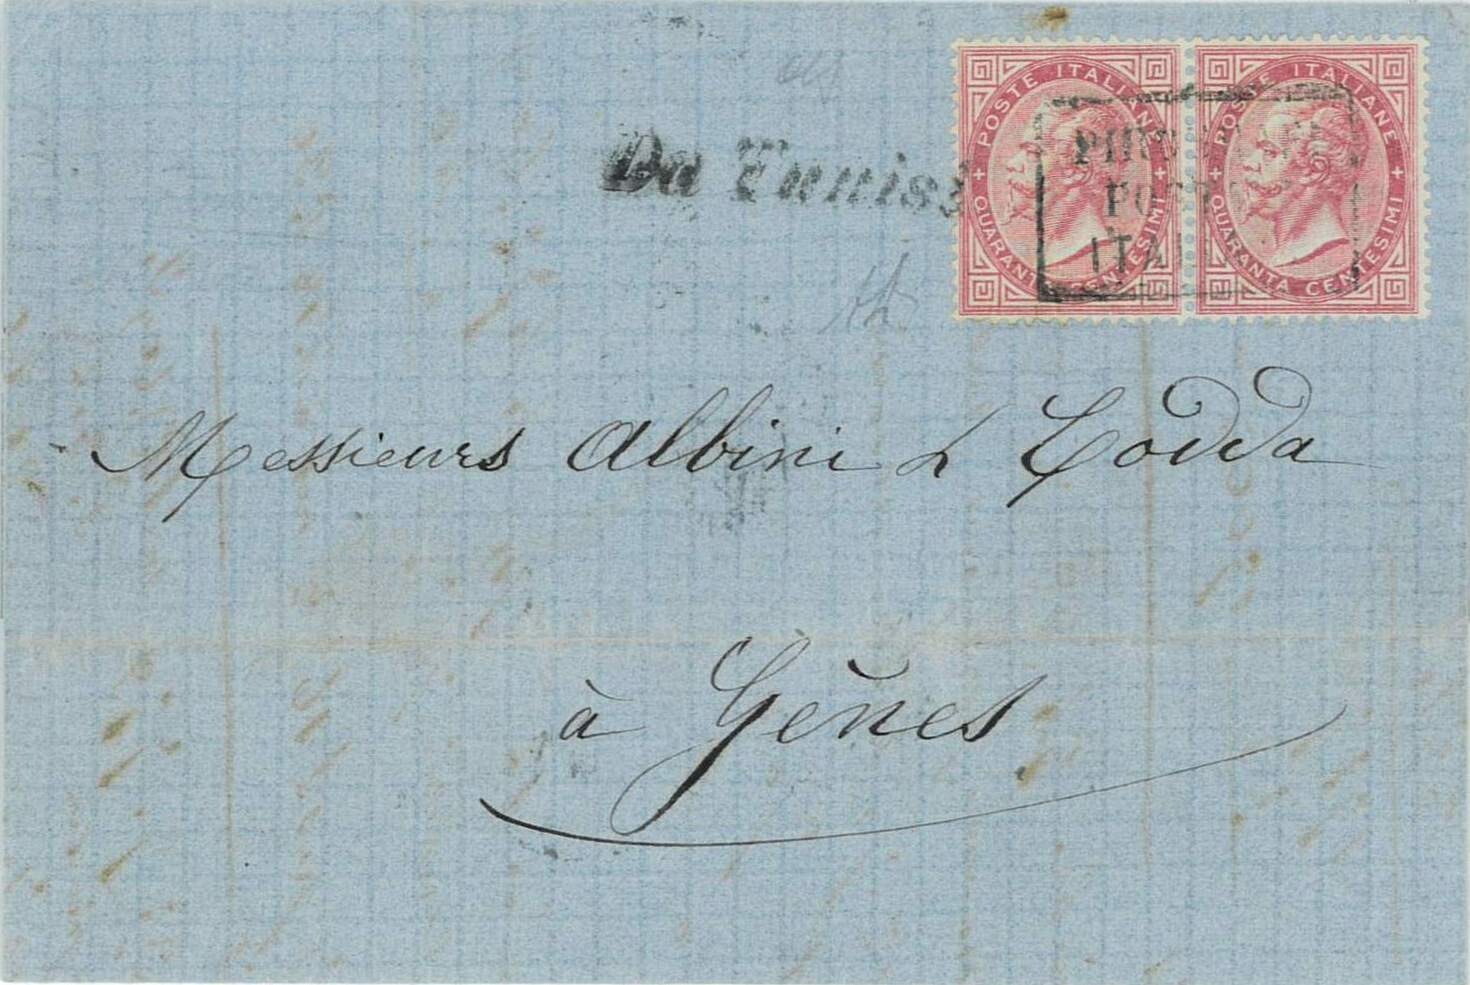 Da Tunisi
POSTE ITALIANE
QUARANTA CENTESIMI
POSTE ITALIANE
QUARANTA CENTESIMI
PIROSCAFI
POSTALI
ITALIANI
Messieurs Albini &
à Gênes